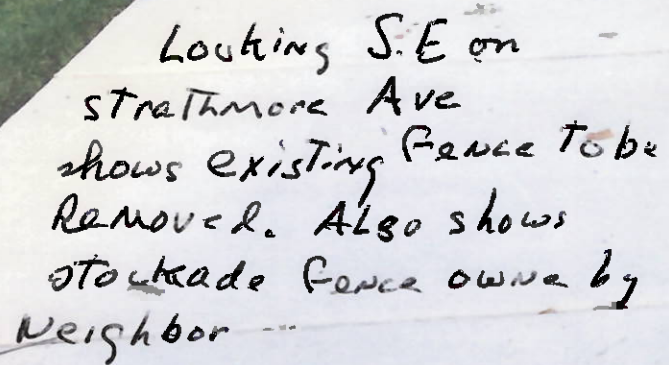 Looking S.E on
Strathmore Ave
shows existing fence To be
Removed. Also shows
stockade fence owne by
Neighbor